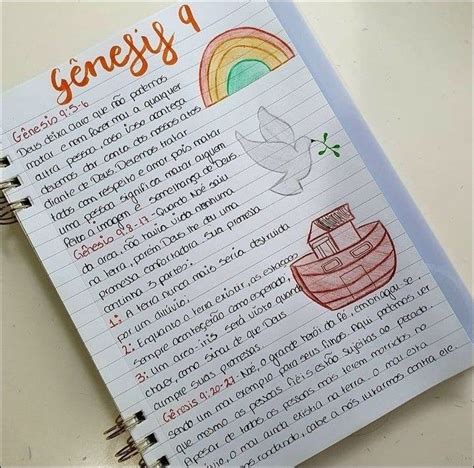 Gênesis 9
Gênesis 9:5-6
Deus deixa claro que não podemos
matar e nem fazer mal a qualquer
outra pessoa, caso isso aconteça
daremos dar conta dos nossos atos
diante de Deus. Devemos tratar
todos com respeito e amor pois matar
uma pessoa significa matar alguém
feito a imagem e semelhança de Deus.
Gênesis 9:8-17 - Quando Noé saiu
da arca, não havia vida nenhuma
na terra, porém Deus lhe deu uma
promessa confortadora. Sua promessa
continha 3 partes:
1: A terra nunca mais seria destruída
por um dilúvio;
2: Enquanto a terra existir, as estações
sempre acontecerão como esperado;
3: Um arco-íris será visto quando
chover, como sinal de que Deus
cumpre suas promessas.
Gênesis 9:20-27: Noé, o grande herói da fé, embriagou se,
sendo um mal exemplo para seus filhos. Aqui podemos ver
que mesmo as pessoas fiéis estão sujeitas ao pecado.
Apesar de todas as pessoas más terem morrido no
dilúvio, o mal ainda existia na terra. O mal está
nos rondando, cabe a nós lutarmos contra ele.